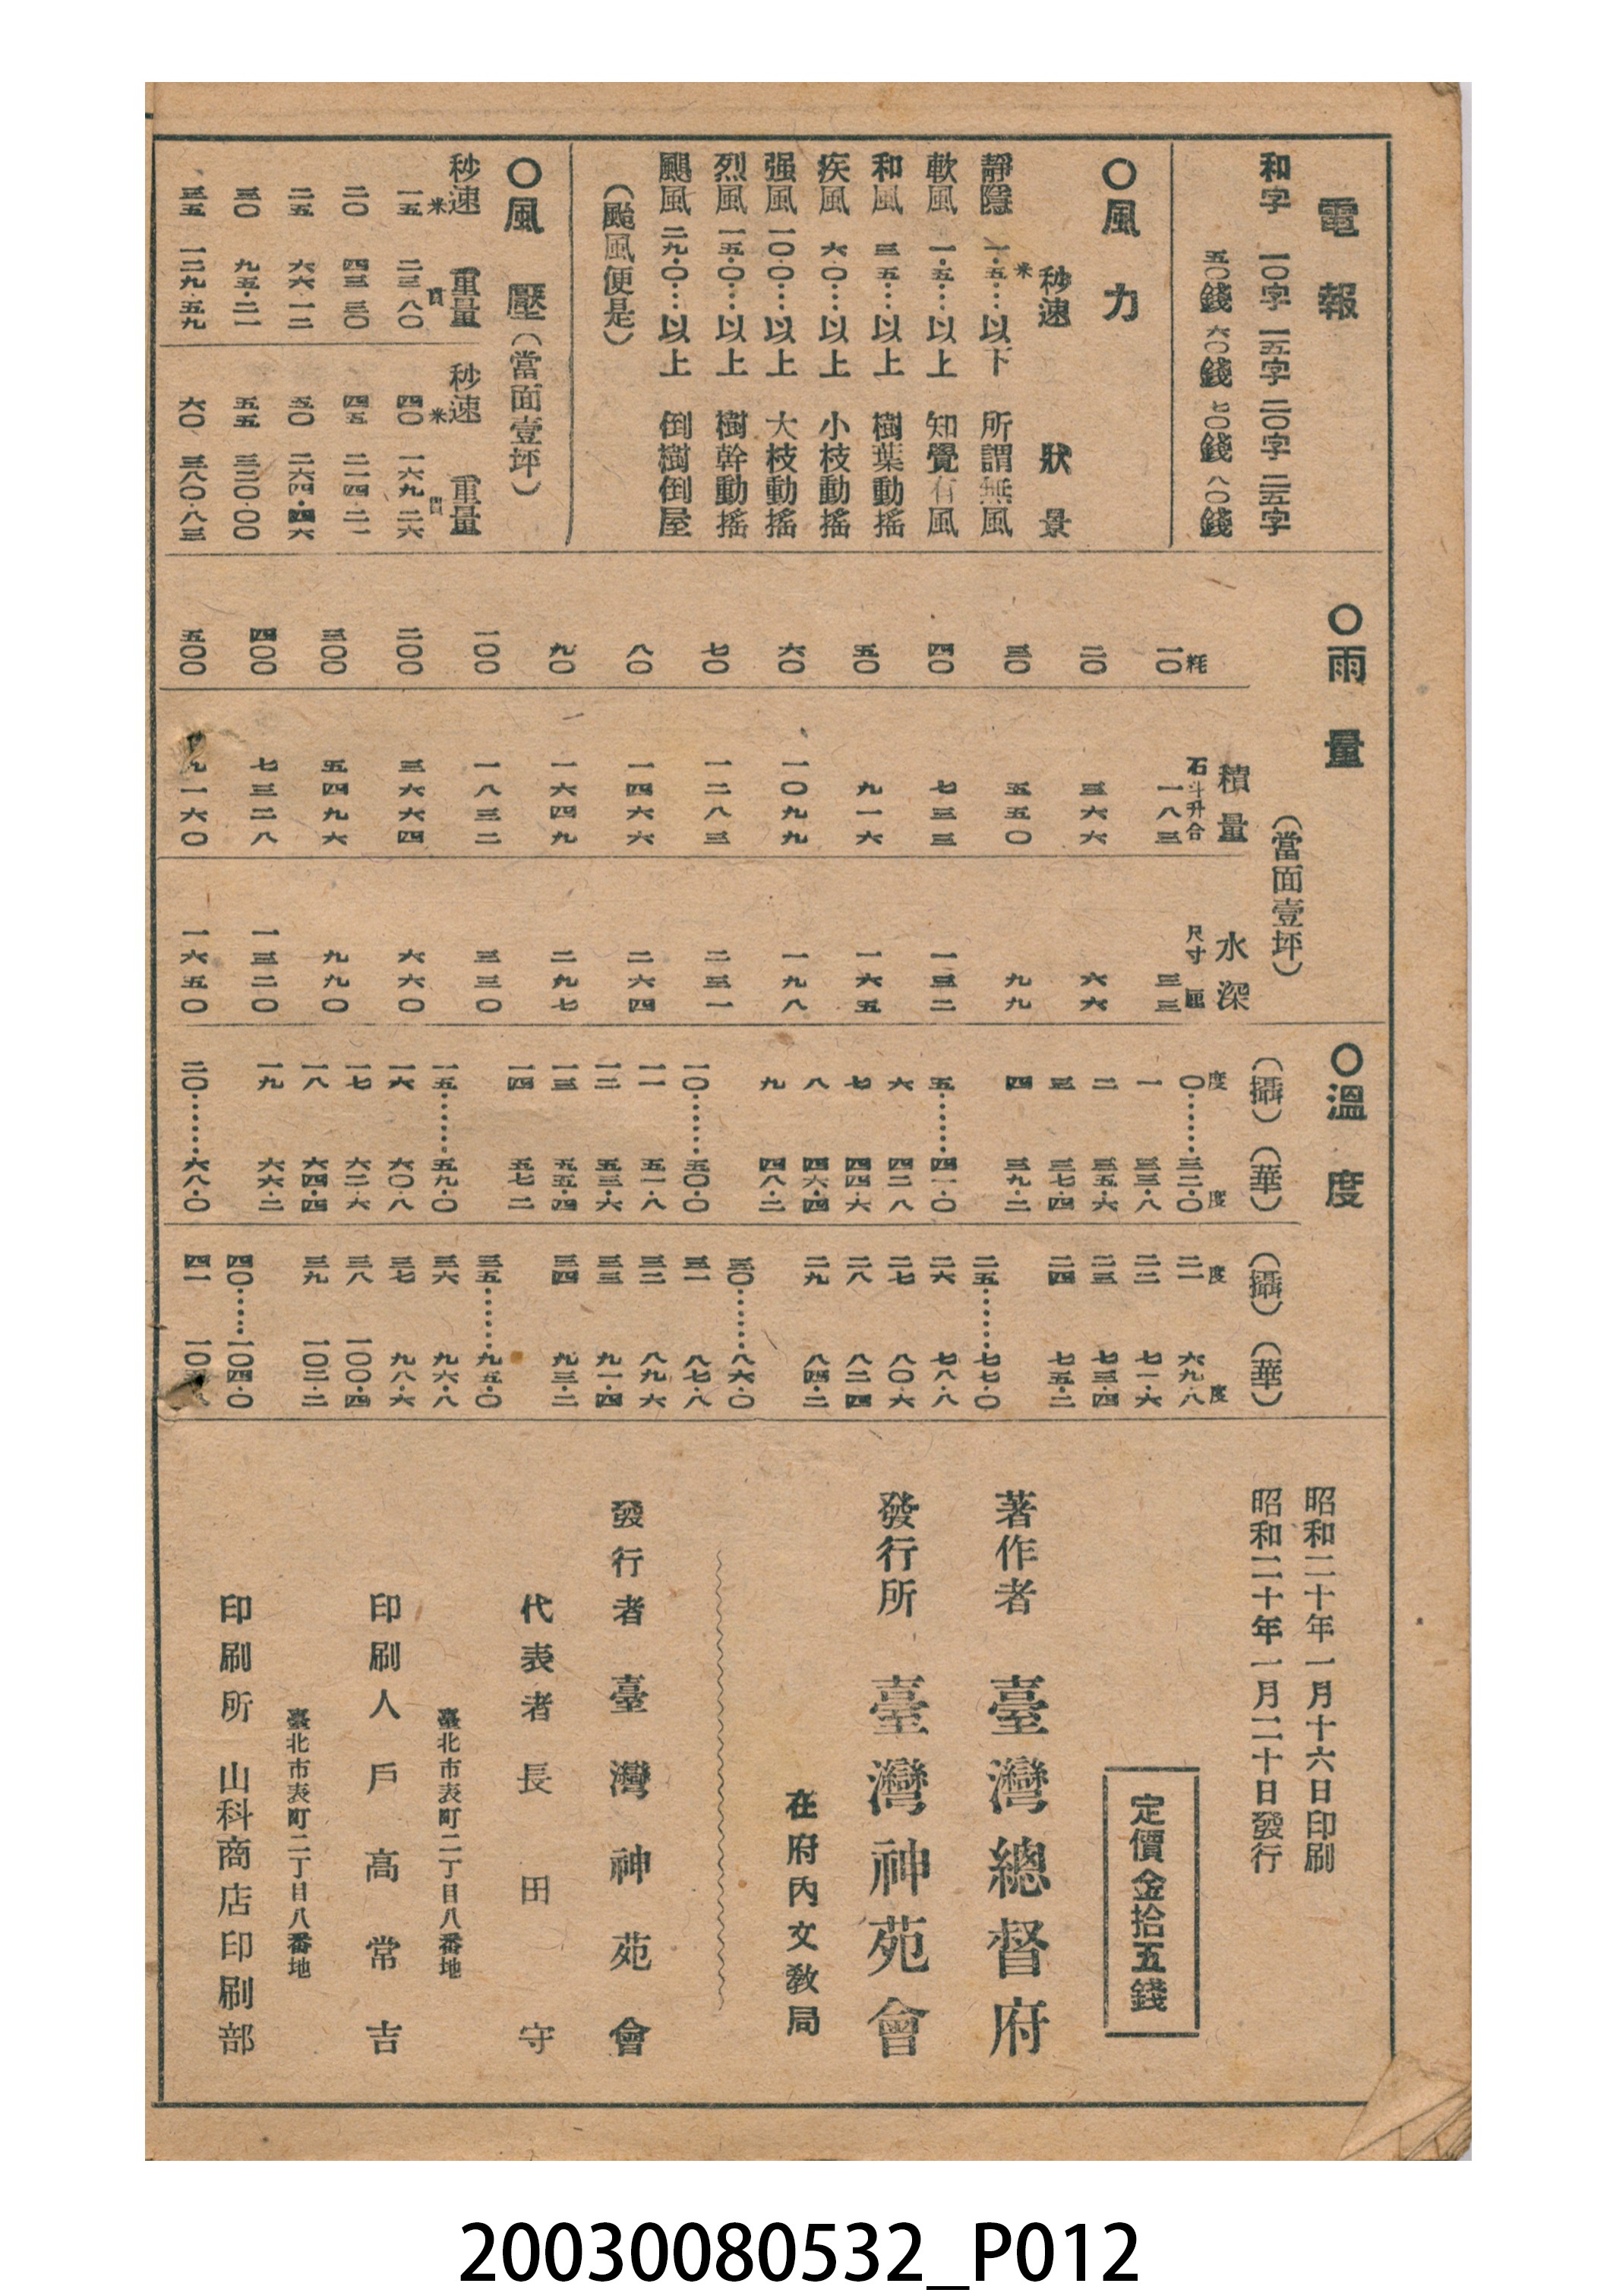 電報
和字 一〇字 一五字 二〇字 二五字
五〇錢 六〇錢 七〇錢 八〇錢
〇風力
秒速 狀景
靜隱 一・五米…以下 所謂無風
軟風 一・五…以上 知覺有風
和風 三・五…以上 樹葉動搖
疾風 六・〇…以上 小枝動搖
强風 一〇・〇…以上 大枝動搖
烈風 一五・〇…以上 樹幹動搖
颶風 二九・〇…以上 倒樹倒屋
(颱風便是)
〇風壓(當面壹坪)
秒速 重量 秒速 重量
米 貫 米 貫
一五 二三・八〇 四〇 一六九・二六
二〇 四三・三〇 四五 二一四・二一
二五 六六・一二 五〇 二六四・四六
三〇 九五・二一 五五 三二〇・〇〇
三五 一二九・五九 六〇 三八〇・八三
〇雨量
(當面壹坪)
積量 水深
粍 石斗升合 尺寸厘
一〇 一八三 三三
二〇 三六六 六六
三〇 五五〇 九九
四〇 七三三 一三二
五〇 九一六 一六五
六〇 一〇九九 一九八
七〇 一二八三 二三一
八〇 一四六六 二六四
九〇 一六四九 二九七
一〇〇 一八三二 三三〇
二〇〇 三六六四 六六〇
三〇〇 五四九六 九九〇
四〇〇 七三二八 一三二〇
五〇〇 九一六〇 一六五〇
〇溫度
(攝) (華) (攝) (華)
度 度 度 度
〇……三二・〇 二一 六九・八
一 三三・八 二二 七一・六
二 三五・六 二三 七三・四
三 三七・四 二四 七五・二
四 三九・二
五……四一・〇 二五……七七・〇
六 四二・八 二六 七八・八
七 四四・六 二七 八〇・六
八 四六・四 二八 八二・四
九 四八・二 二九 八四・二
一〇……五〇・〇 三〇……八六・〇
一一 五一・八 三一 八七・八
一二 五三・六 三二 八九・六
一三 五五・四 三三 九一・四
一四 五七・二 三四 九三・二
一五……五九・〇 三五……九五・〇
一六 六〇・八 三六 九六・八
一七 六二・六 三七 九八・六
一八 六四・四 三八 一〇〇・四
一九 六六・二 三九 一〇二・二
二〇……六八・〇 四〇……一〇四・〇
四一
昭和二十年一月十六日印刷
昭和二十年一月二十日發行
定價金拾五錢
著作者 臺灣總督府
發行所 臺灣神苑會
在府內文敎局
發行者 臺灣神苑會
代表者 長田守
臺北市表町二丁目八番地
印刷人 戶高常吉
臺北市表町二丁目八番地
印刷所 山科商店印刷部
20030080532_P012